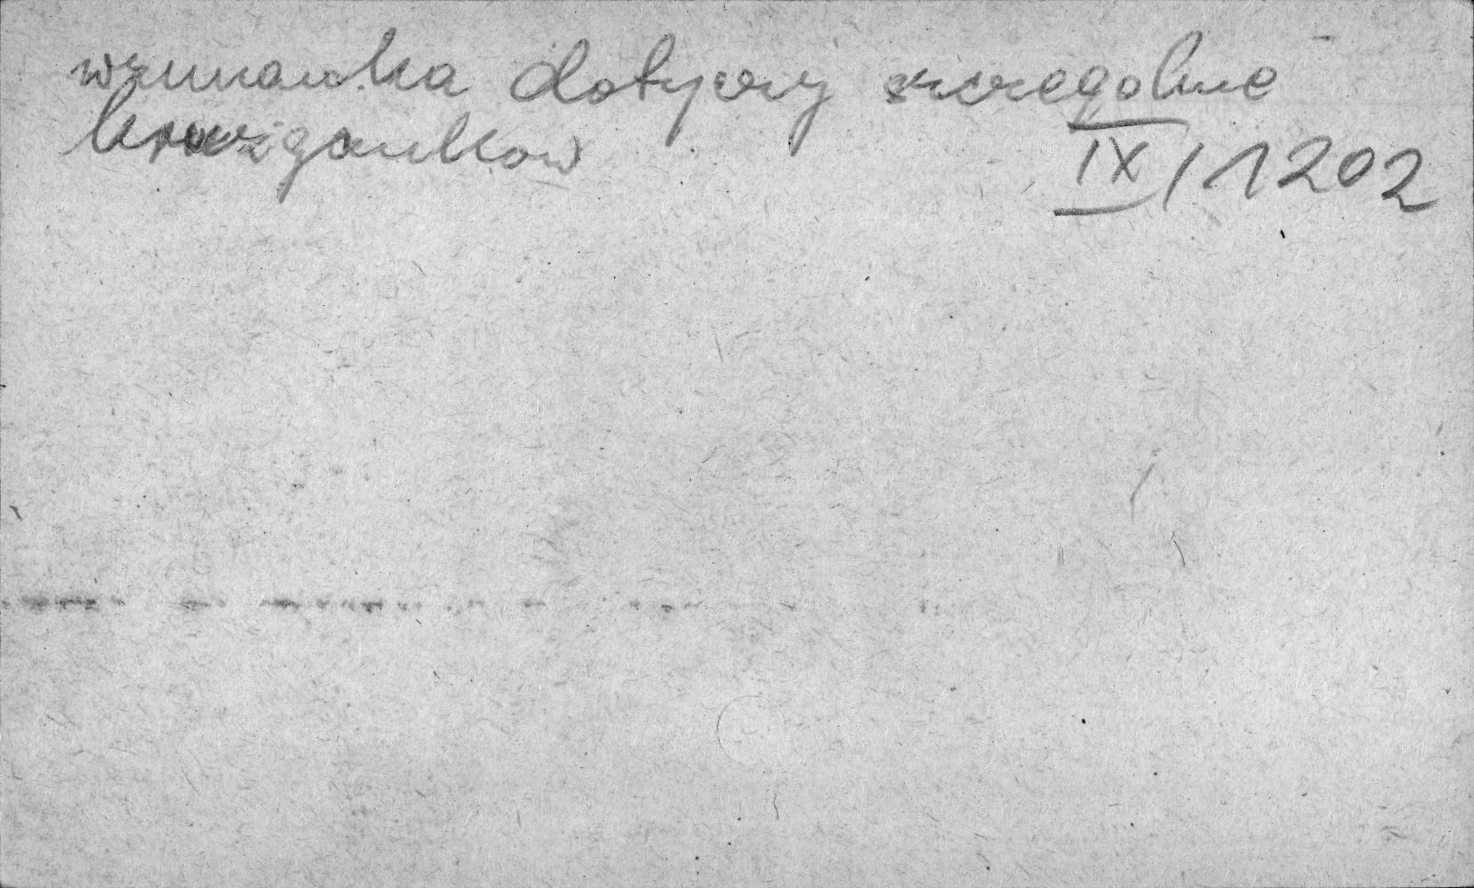 wzmianka dotyczy szczególnie
krużganków
IX/1202